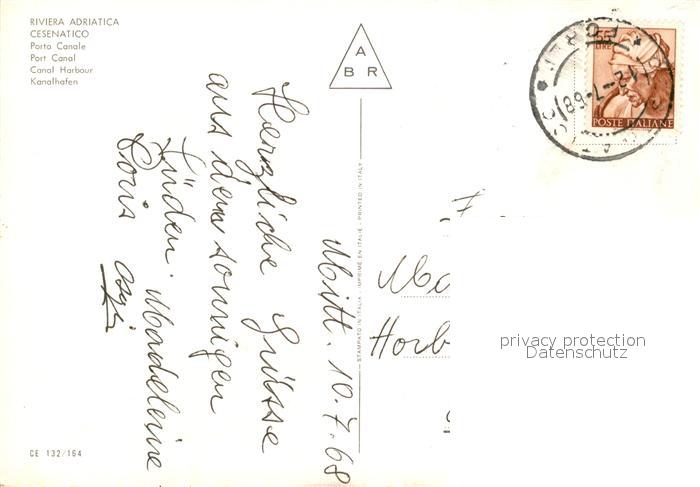 RIVIERA ADRIATICA
CESENATICO
Porto Canale
Port Canal
Canal Harbour
Kanalhafen
A
B R
55
LIRE
POSTE ITALIANE
12-7-68
Mitt. 10.7.68
Herzliche Grüsse
aus dem sonnigen
Süden. Madeleine
Doris
STAMPATO IN ITALIA - IMPRIMÉ EN ITALIE - PRINTED IN ITALY
Horb
privacy protection
Datenschutz
CE 132/164